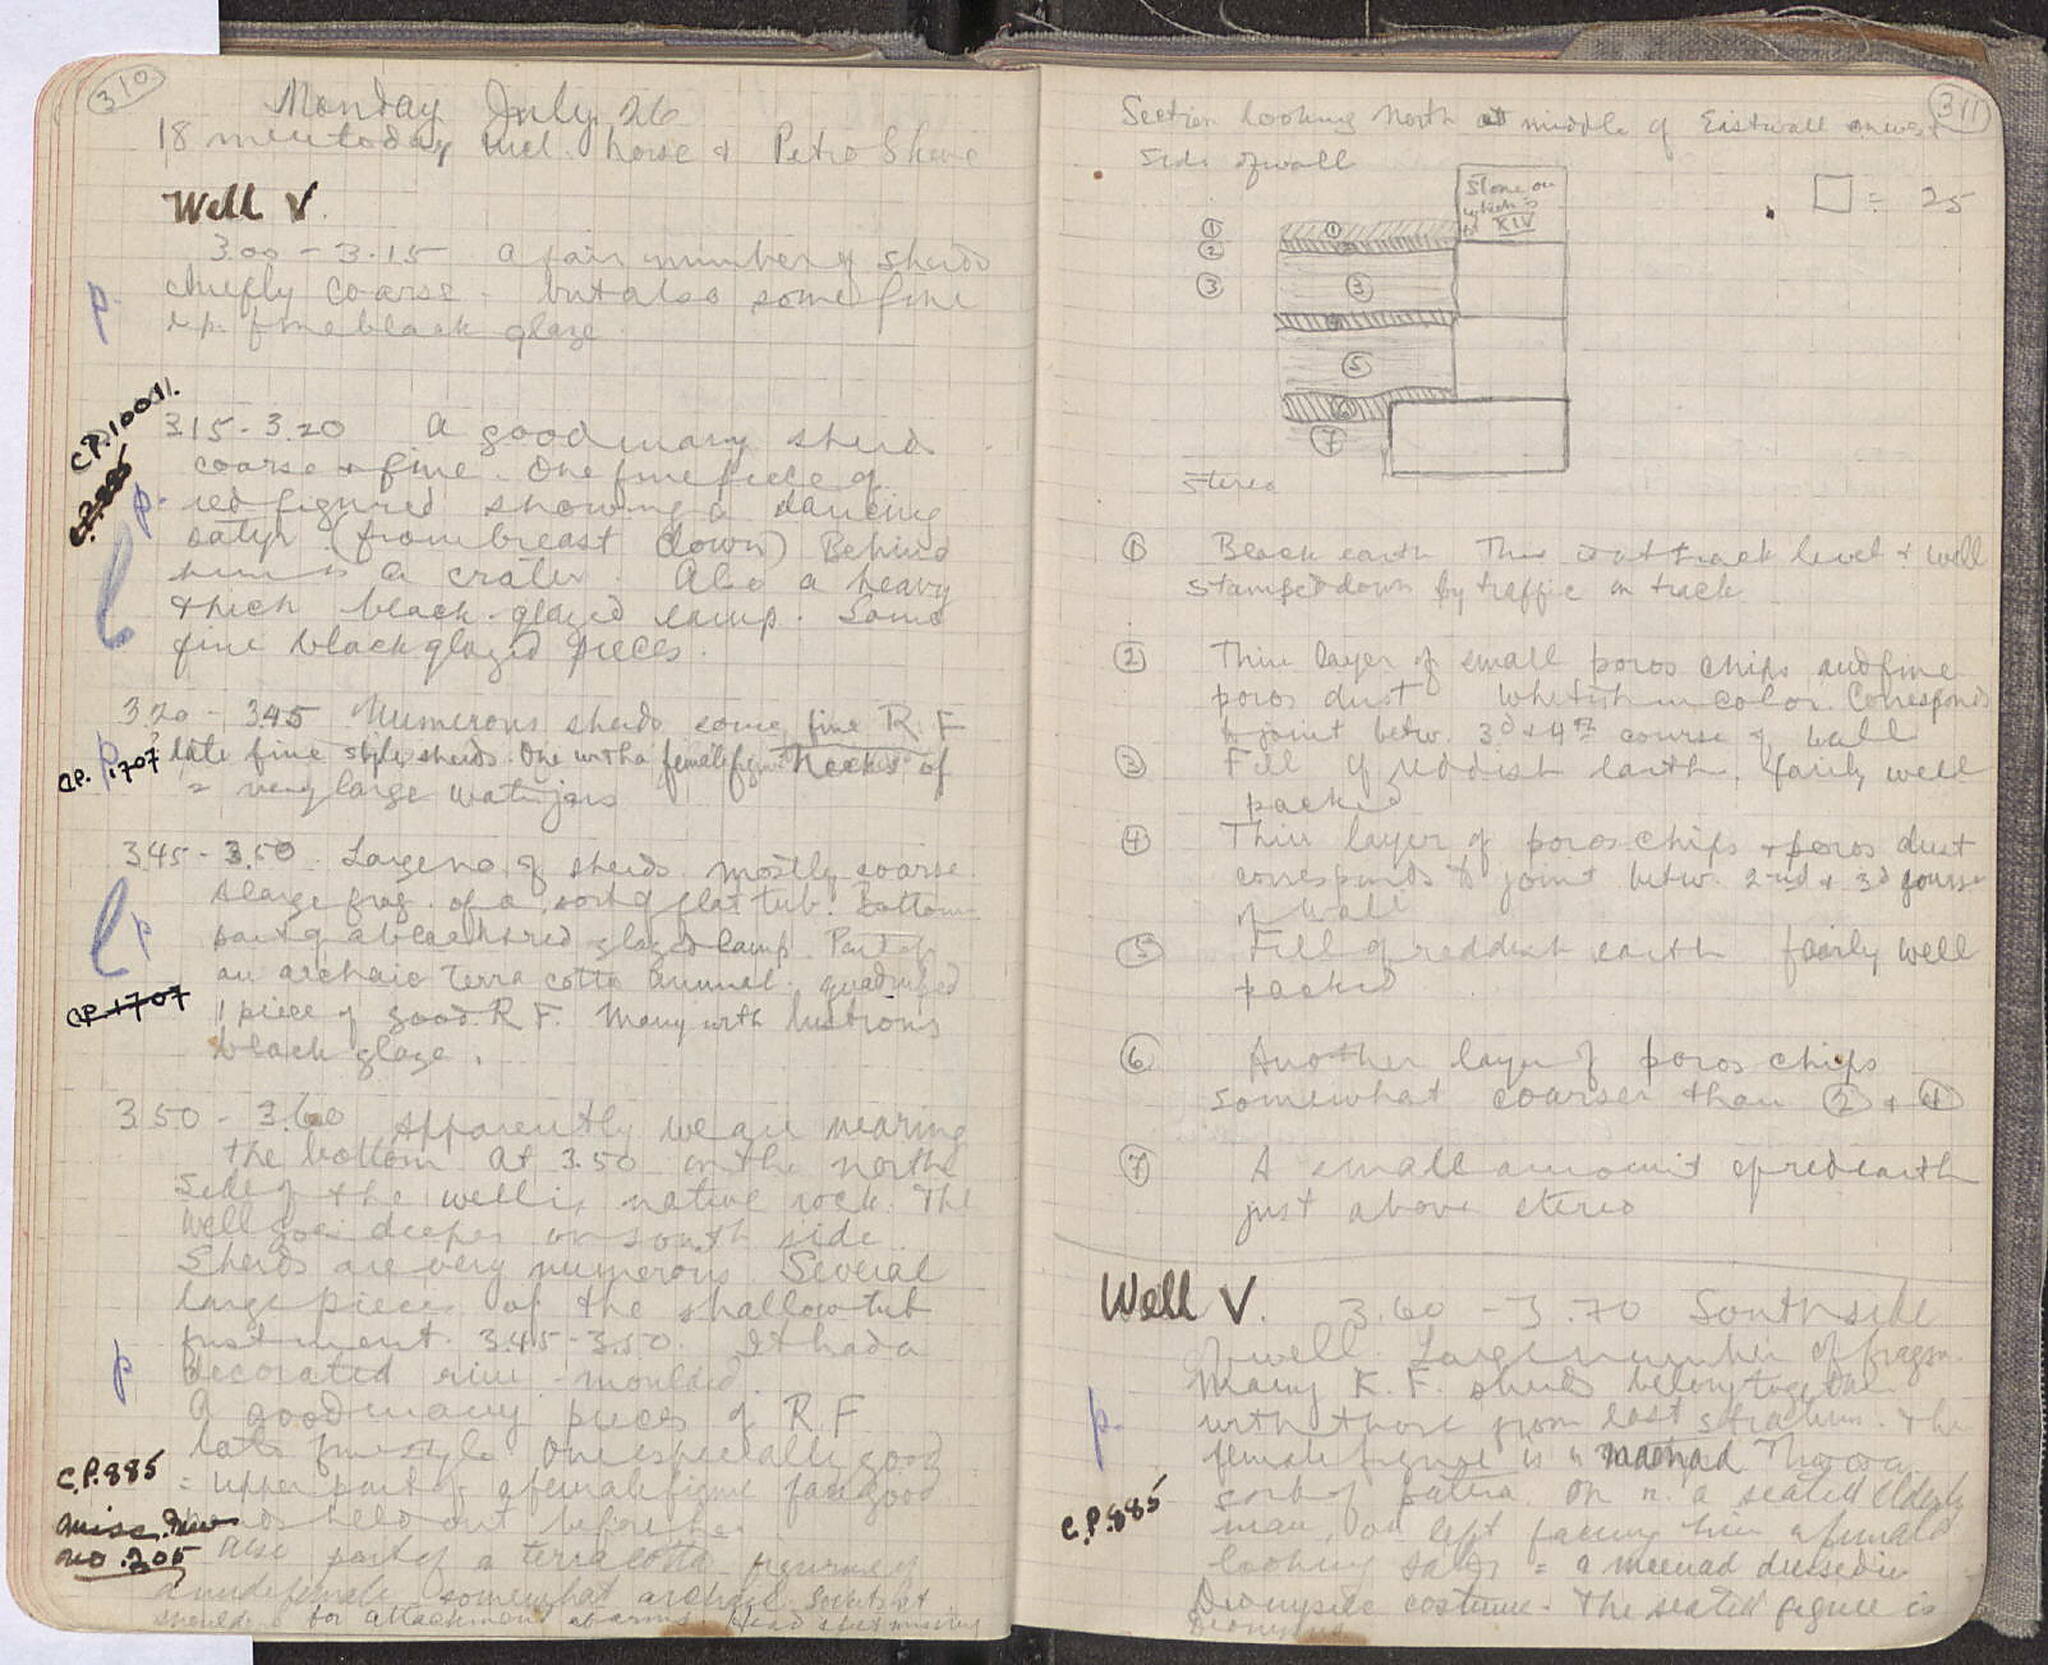 310
Monday July 26
18 men today incl. horse & Petro Skevi
Well V.
3.00 - 3.15 A fair number of sherds
p. chiefly coarse - but also some fine
& p. fine black glaze
CP.1001.
3.15 - 3.20 A good many sherds
coarse & fine. One fine piece of
p. red figured showing a dancing
satyr (from breast down) Behind
him is a crater. Also a heavy
thick black-glazed lamp. Some
l fine black glazed pieces.
3.20 - 3.45 Numerous sherds some fine R.F
CP. 1707 p. late fine style sherds. One with a female figure Necks of
2 very large water jars
3.45 - 3.50. Large no. of sherds mostly coarse.
a large frag. of a sort of flat tub. Bottom
l p part of a black & red glazed lamp. Part of
an archaic terra cotta animal. quadruped
CP 1707 1 piece of good R.F. Many with lustrous
black glaze.
3.50 - 3.60 Apparently we are nearing
the bottom At 3.50 on the north
side of the well is native rock. The
well goes deeper on south side.
Sherds are very numerous. Several
large pieces of the shallow tub
first ment. 3.45-3.50. It had a
p decorated rim - moulded.
A good many pieces of R.F
late fine style. One especially good
C.P.885 = upper part of a female figure face good
hands held out before her
misc. Inv
no. 205 Also part of a terra cotta figurine of
a nude female somewhat archaic sockets at
shoulders for attachment of arms. Head & feet missing
311
Section looking North at middle of East wall on west
side of wall
Stone on
which is
XIV
□ = 25
① ①
②
③ ③
⑤
⑥
⑦
Stereo
① Black earth This is at track level & well
stamped down by traffic on track
② Thin layer of small poros chips and fine
poros dust whitish in color. Corresponds
to joint betw. 3d & 4th course of wall
③ Fill of reddish earth, fairly well
packed
④ Thin layer of poros chips & poros dust
corresponds to joint betw. 2nd & 3d course
of wall
⑤ Fill of reddish earth fairly well
packed
⑥ Another layer of poros chips
somewhat coarser than ② + ④
⑦ A small amount of red earth
just above stereo
Well V. 3.60 - 3.70 South side
of well. Large number of fragm.
Many R.F. sherds belong together
p. with those from last stratum. The
female figure is a maenad There is a
C.P.885 sort of patera On r. a seated elderly
man, on left facing him a female
looking satyr = a maenad dressed in
Dionysiac costume - The seated figure is
Dionysus